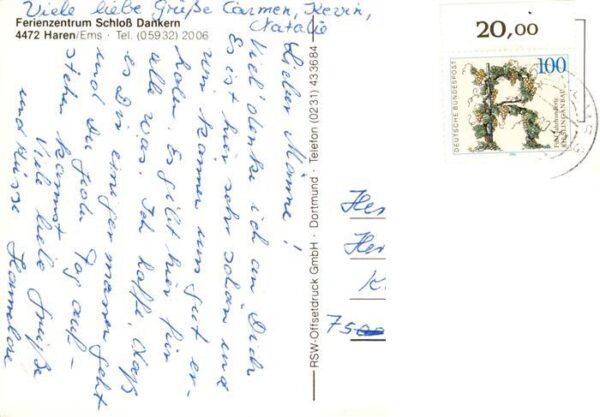 Viele liebe Grüße Carmen, Kevin,
Natalie
Ferienzentrum Schloß Dankern
4472 Haren/Ems · Tel. (05932) 2006
Lieber Männe!
Viel denke ich an Dich
Es ist hier sehr schön und
wir kannen uns gut er-
holen. Es gibt hier für
alle was. Ich hoffe, daß
es Dir einigermassen geht
und Du jeden Tag auf-
stehen kannst.
Viele liebe Grüße
und Küsse Hannelore
RSW-Offsetdruck GmbH · Dortmund · Telefon (0231) 433684
20,00
100
DEUTSCHE BUNDESPOST
RIESLINGANBAU
Her
Her
K